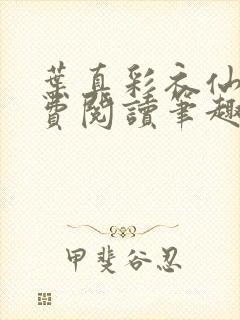 葉真彩衣仙
費閱讀筆趣
甲斐谷忍